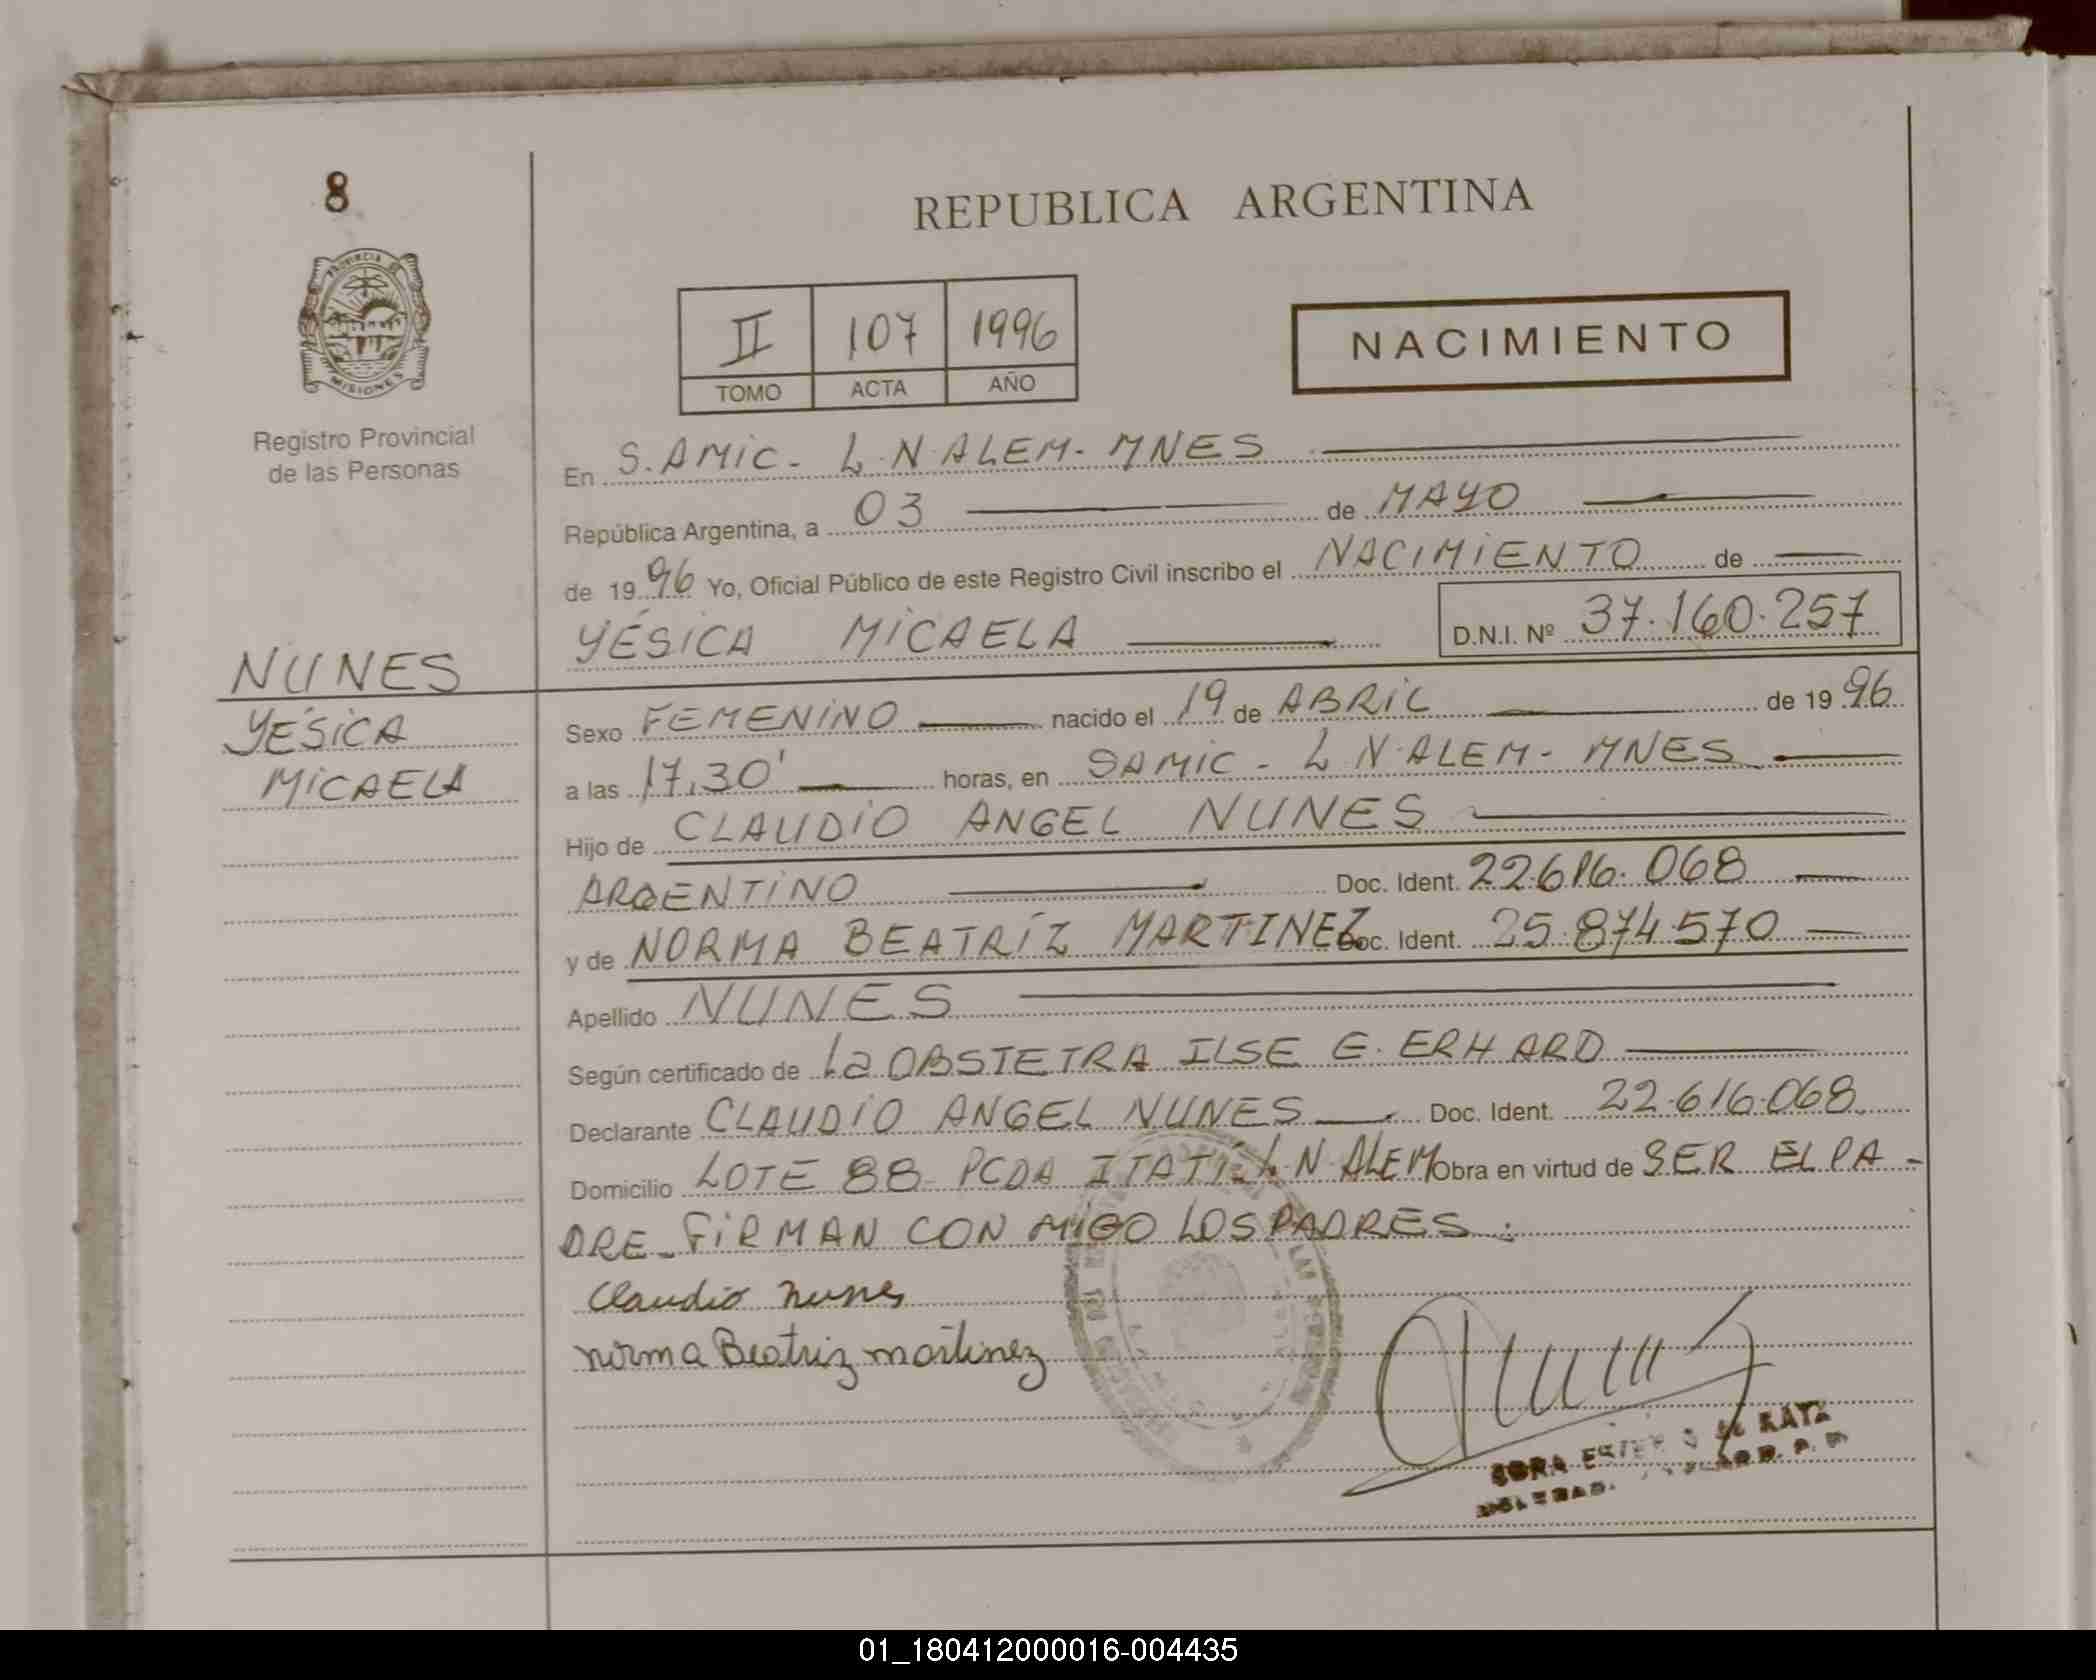 8
REPUBLICA ARGENTINA
PROVINCIA DE
MISIONES
II 107 1996
TOMO ACTA AÑO
NACIMIENTO
Registro Provincial
de las Personas
En S.AMIC- L.N.ALEM-MNES
República Argentina, a 03 de MAYO
de 1996 Yo, Oficial Público de este Registro Civil inscribo el NACIMIENTO de
YÉSICA MICAELA D.N.I. Nº 37.160.257
NUNES
YÉSICA
MICAELA
Sexo FEMENINO nacido el 19 de ABRIL de 1996
a las 17.30' horas, en SAMIC- L N.ALEM- MNES
Hijo de CLAUDIO ANGEL NUNES
ARGENTINO Doc. Ident. 22.616.068
y de NORMA BEATRÍZ MARTINEZ Doc. Ident. 25.874.570
Apellido NUNES
Según certificado de La OBSTETRA ILSE E. ERHARD
Declarante CLAUDIO ANGEL NUNES Doc. Ident. 22.616.068
Domicilio LOTE 88- PCDA ITATÍ- L.N.ALEM Obra en virtud de SER EL PA-
DRE- FIRMAN CON MIGO LOS PADRES:
Claudio Nunes
norma Beatriz martinez
SDRA DE RATZ
01_180412000016-004435